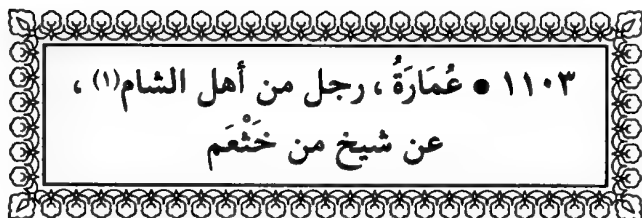 ١١٠٣ • عُمَارَةُ ، رجل من أهل الشام(١) ،
عن شيخ من خَثْعَم